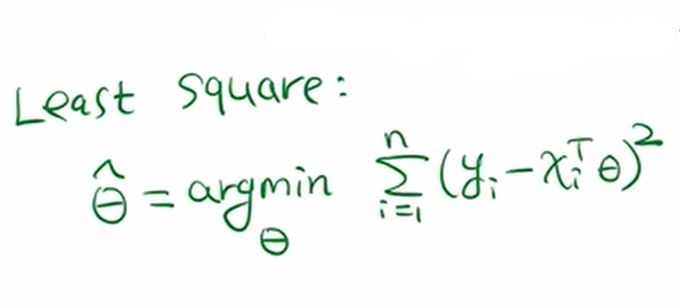 Least Square:
θ̂ = argmin_θ ∑_{i=1}^{n} (y_i − x_i^T θ)^2